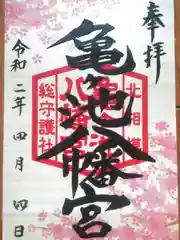 奉拝
北相模
亀ヶ池八幡宮
総守護社
令和二年四月四日